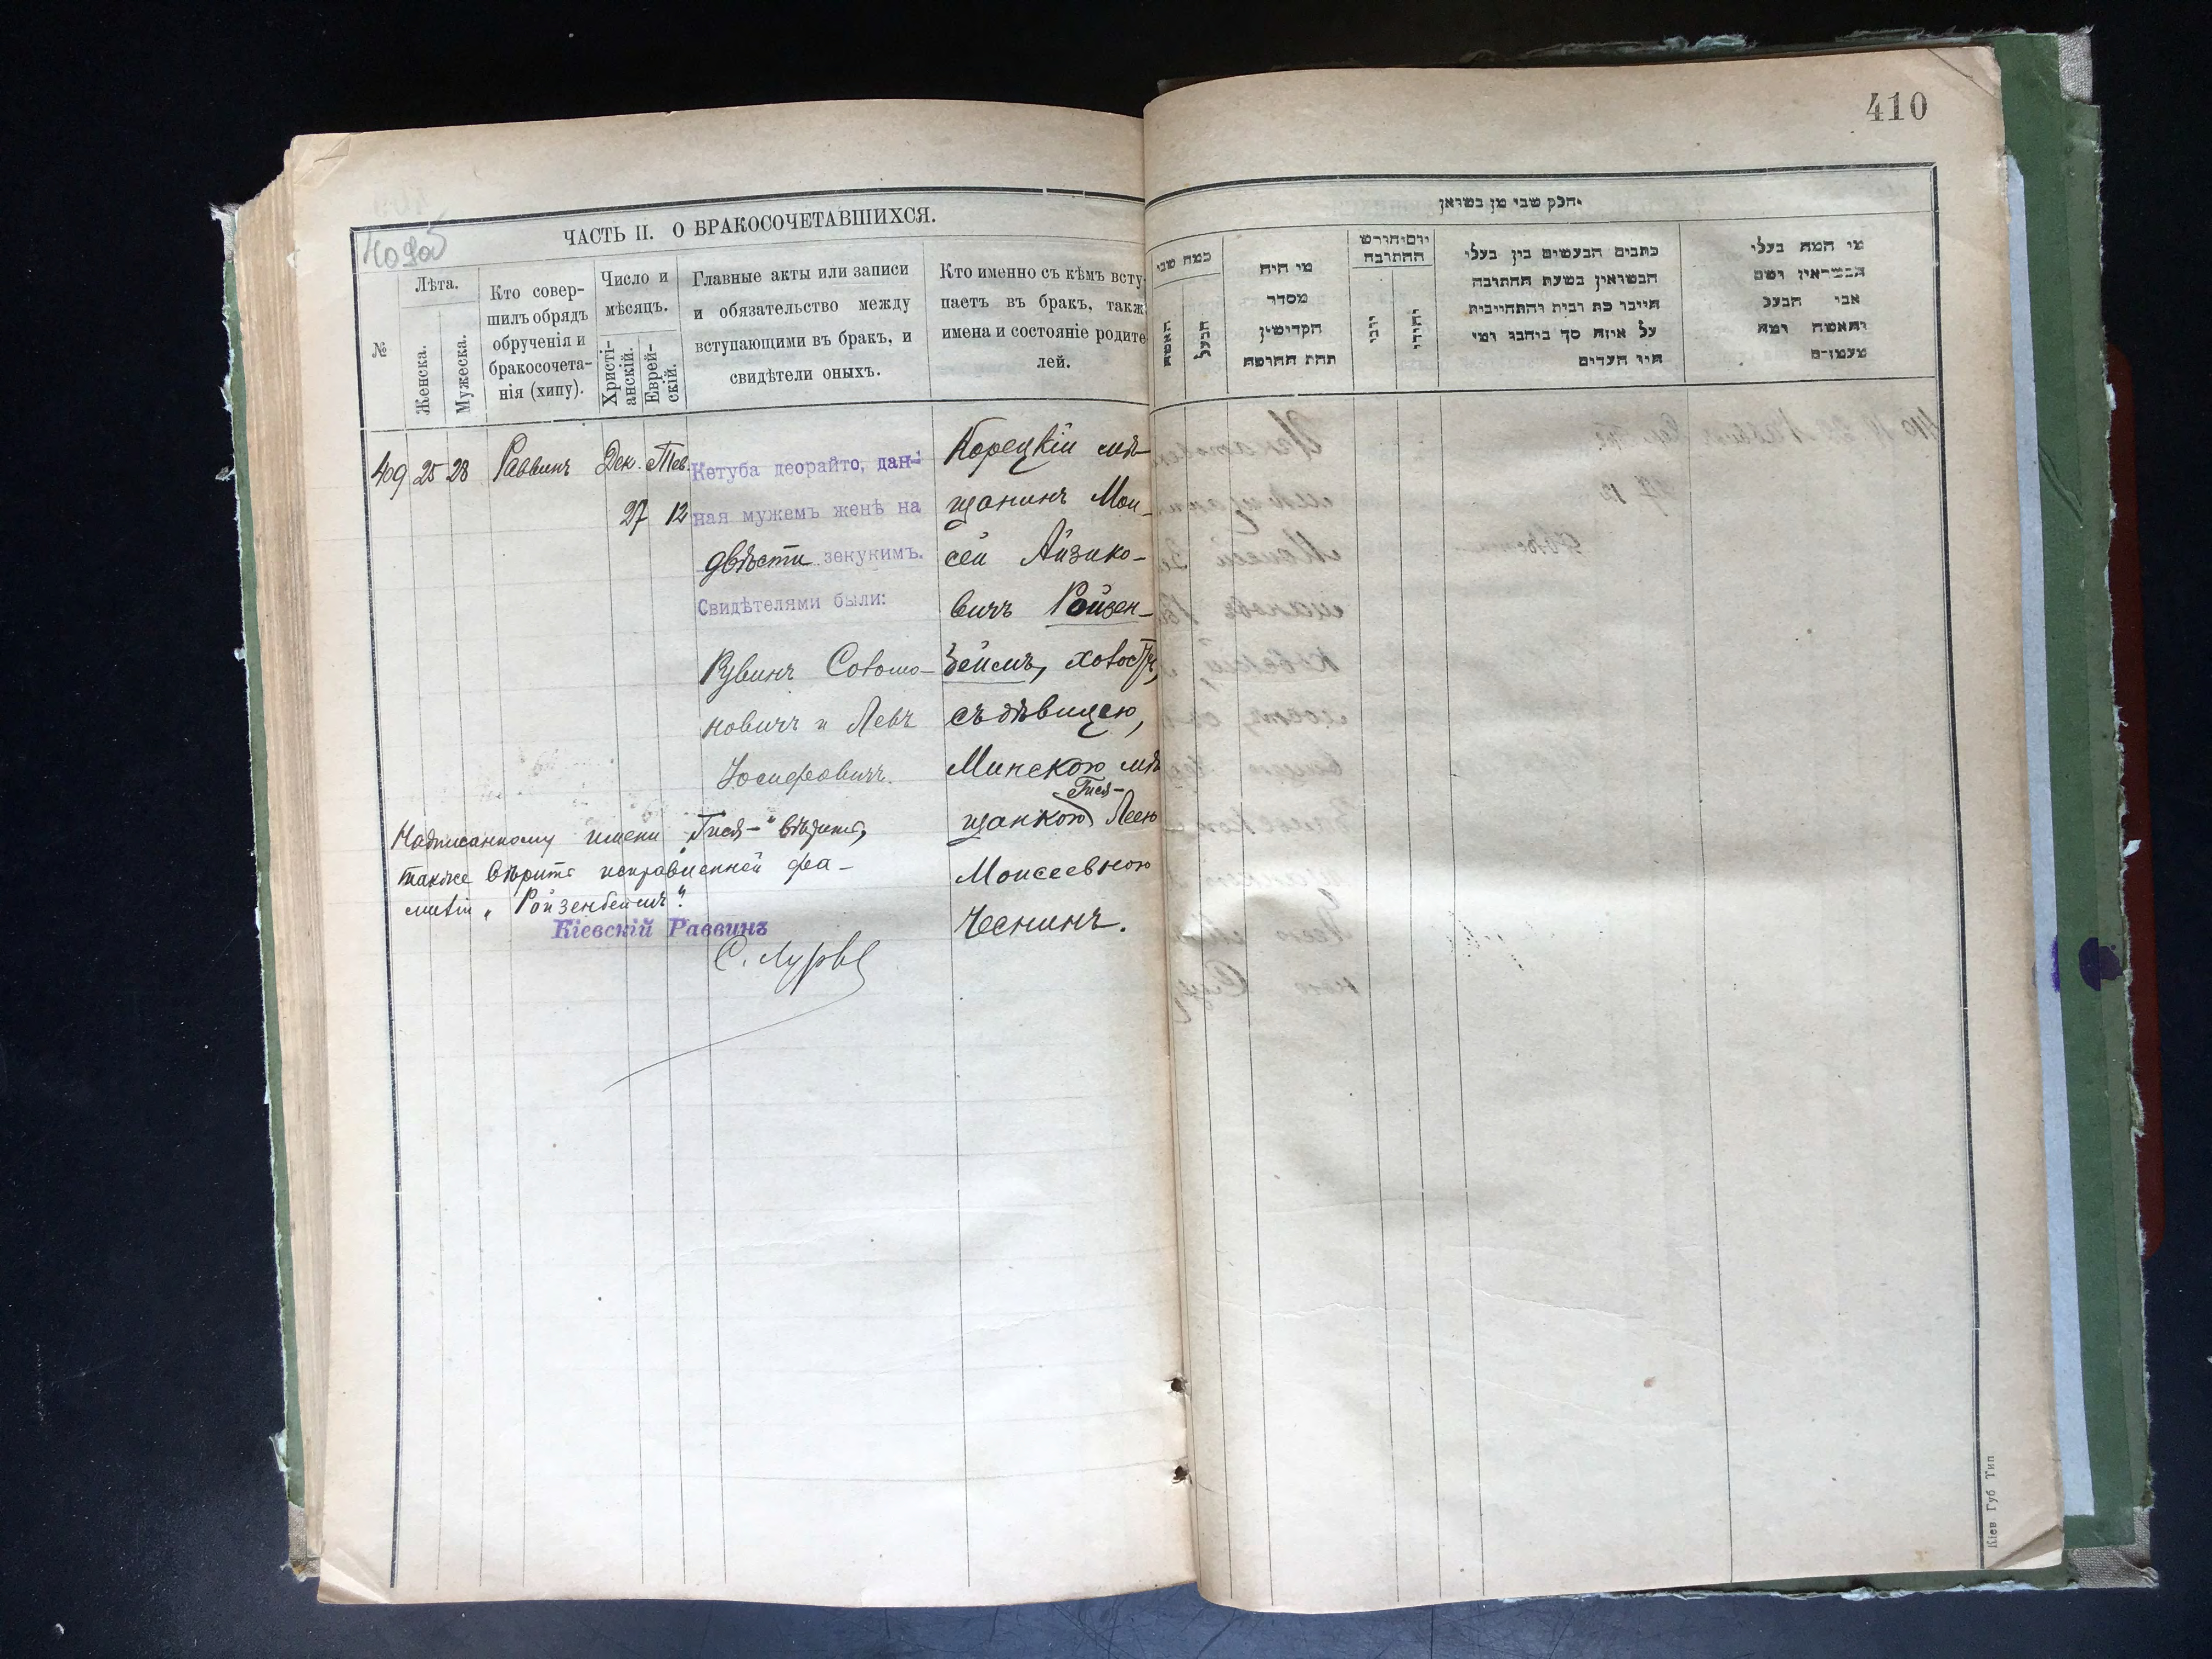 410
409 об
ЧАСТЬ II. О БРАКОСОЧЕТАВШИХСЯ.
№
Лѣта.
Женска.
Мужеска.
Кто совер-
шилъ обрядъ
обрученія и
бракосочета-
нія (хипу).
Число и
мѣсяцъ.
Христі-
анскій.
Еврей-
скій.
Главные акты или записи
и обязательство между
вступающими въ бракъ, и
свидѣтели оныхъ.
Кто именно съ кѣмъ всту-
паетъ въ бракъ, такж
имена и состояніе родите
лей.
409 25 28 Раввинъ Дек. Тев.
27 12
Кетуба деорайто, дан-
ная мужемъ женѣ на
двѣсти зекукимъ.
Свидѣтелями были:
Рувинъ Соломо-
новичъ и Левъ
Іосифовичъ.
Корецкій мѣ-
щанинъ Мои-
сей Айзико-
вичъ Ройзен-
беймъ, холостъ,
съ дѣвицею,
Минскою мѣ
Гися-
щанкою Леею
Моисеевною
Чеснинъ.
Надписанному имени „Гися-" вѣрить,
также вѣрить исправленной фа-
миліи „Ройзенбеймъ".
Кіевскій Раввинъ
С. Лурье
חלק שני מן נשואן.
כמה שני
האשה
הבעל
מי היה
מסדר
הקדושין
תחת החופה
יום וחודש
החתונה
יהודי
כתבים הנעשים בין בעלי
הנשואין בשעת החתונה
היינו כת ובית והתחייבות
על איזה סך ביחבג ומי
היו העדים
מי המה בעלי
הנשואין ושם
אבי הבעל
והאשה ומה
מעמדם
Кіев Губ Тип